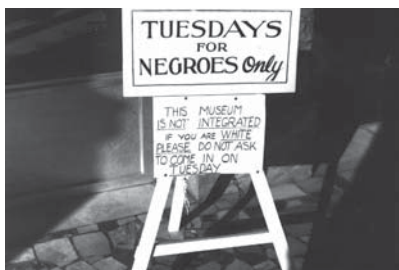 TUESDAYS
FOR
NEGROES Only
THIS MUSEUM
IS NOT INTEGRATED
IF YOU ARE WHITE
PLEASE DO NOT ASK
TO COME IN ON
TUESDAY